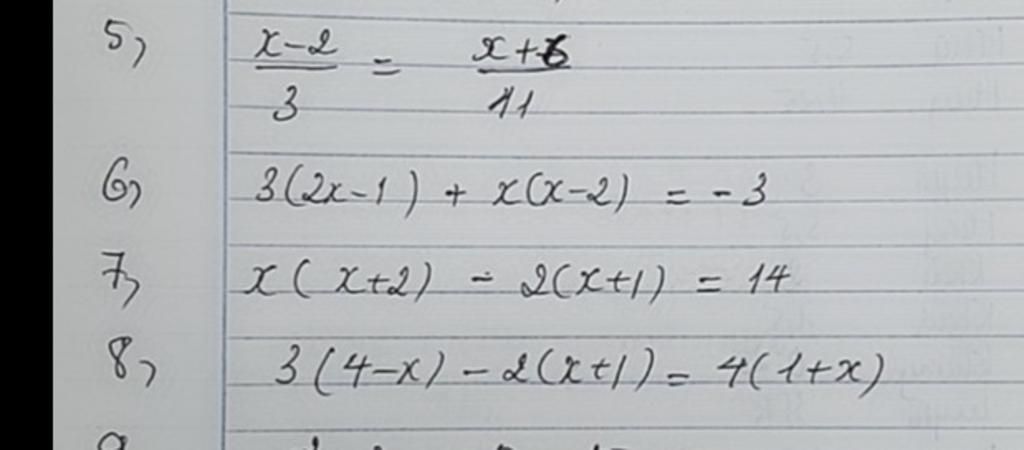 5, x-2/3 = x+6/11
6, 3(2x-1) + x(x-2) = -3
7, x(x+2) - 2(x+1) = 14
8, 3(4-x) - 2(x+1) = 4(1+x)